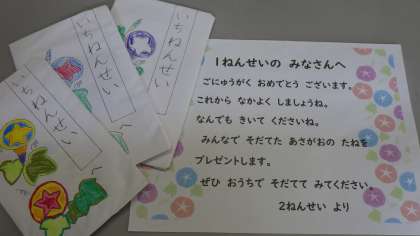 いちねんせい
へ
いちねんせい
いちねんせい
へ
1ねんせいの みなさんへ
ごにゅうがく おめでとう ございます。
これから なかよく しましょうね。
なんでも きいて くださいね。
みんなで そだてた あさがおの たねを
プレゼントします。
ぜひ おうちで そだてて みてください。
2ねんせい より